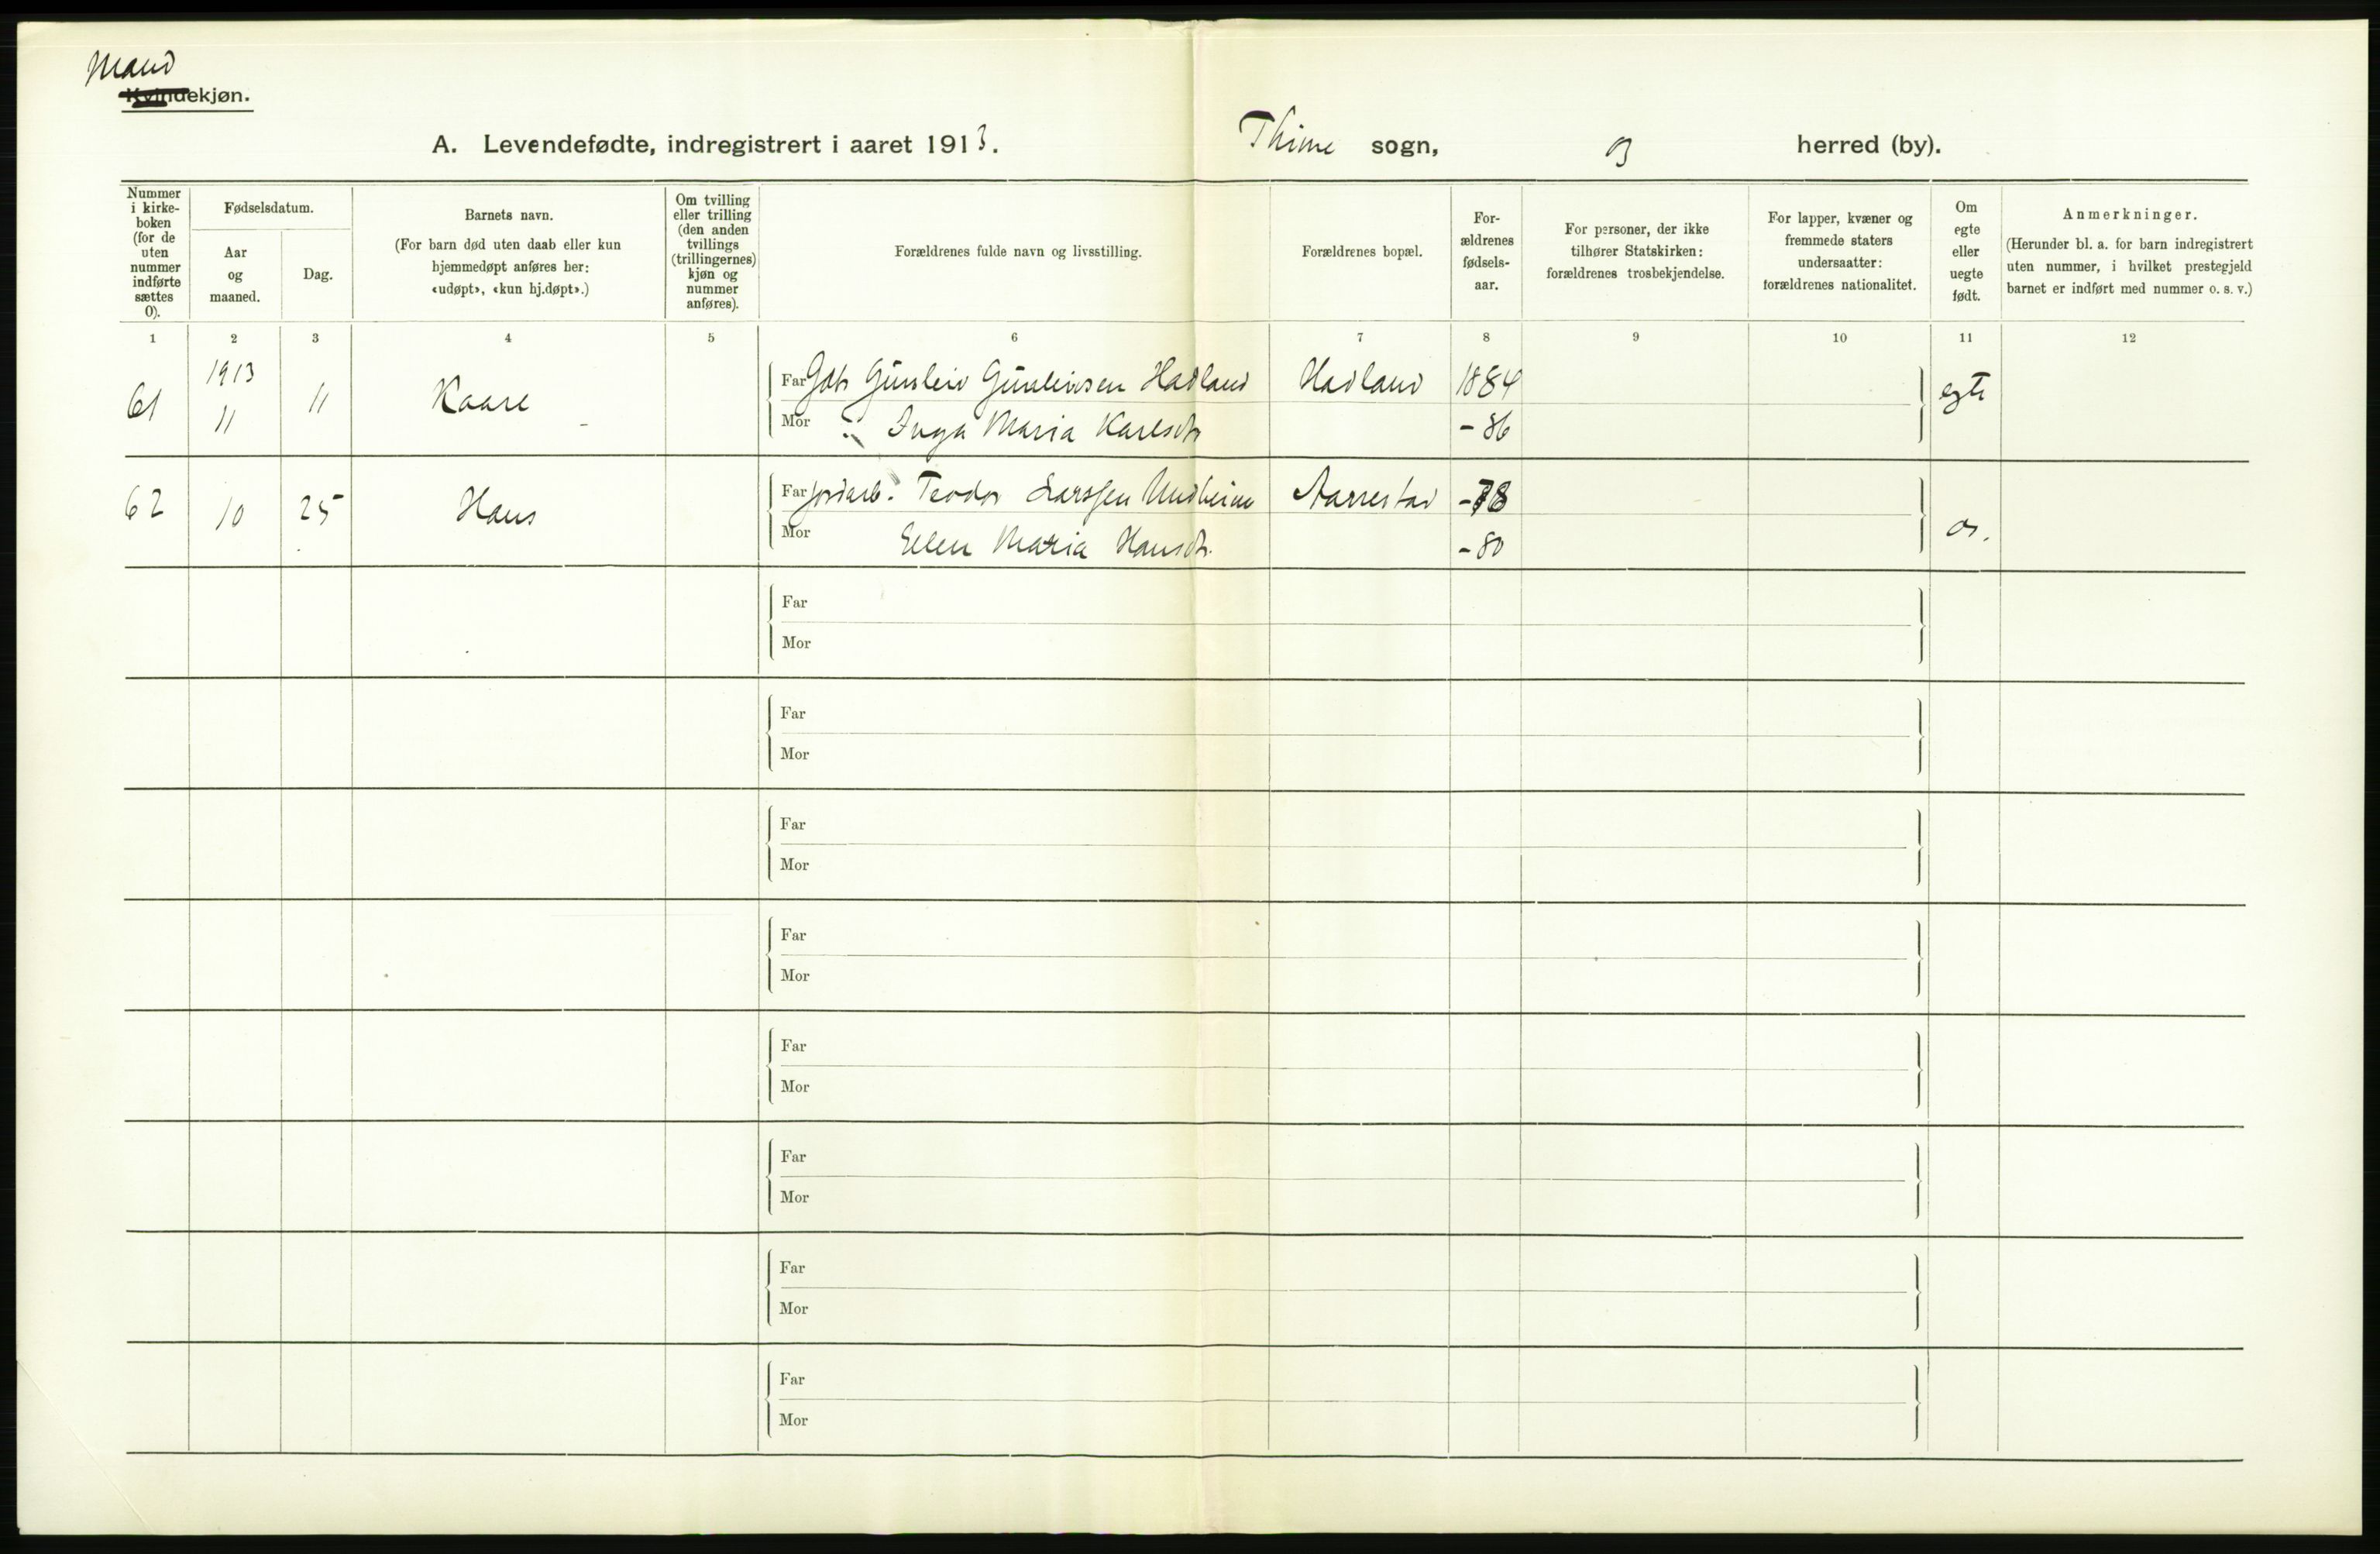 Mand
Kvindekjøn.
A. Levendefødte, indregistrert i aaret 1913.
Thime sogn, herred (by).
Nummer i kirke-boken (for de uten nummer indførte sættes 0).
Fødselsdatum.
Aar og maaned.
Dag.
Barnets navn.
(For barn død uten daab eller kun hjemmedøpt anføres her: «udøpt», «kun hj.døpt».)
Om tvilling eller trilling (den anden tvillings (trillingernes) kjøn og nummer anføres).
Forældrenes fulde navn og livsstilling.
Forældrenes bopæl.
For-ældrenes fødsels-aar.
For personer, der ikke tilhører Statskirken: forældrenes trosbekjendelse.
For lapper, kvæner og fremmede staters undersaatter: forældrenes nationalitet.
Om egte eller uegte født.
Anmerkninger.
(Herunder bl. a. for barn indregistrert uten nummer, i hvilket prestegjeld barnet er indført med nummer o. s. v.)
1 2 3 4 5 6 7 8 9 10 11 12
61 1913 11 11 Kaare Far Gbr Gunleiv Gunleivsen Hadland Hadland 1884 egte
Mor Inga Maria Karlsdtr -86
62 10 25 Hans Far jordarb. Teodor Larssen Undheim Aarrestad -78 do.
Mor Ellen Maria Hansdtr. -80
Far
Mor
Far
Mor
Far
Mor
Far
Mor
Far
Mor
Far
Mor
Far
Mor
Far
Mor